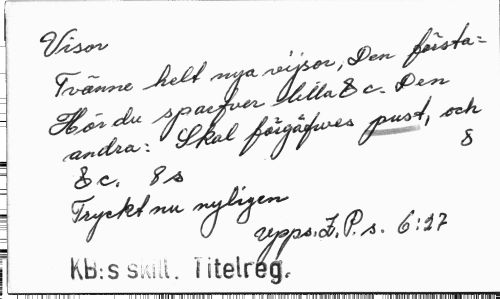 Visor
Tvänne helt nya vijsor, Den första:
Hör du sparfver lilla &c. Den
andra: Skal förgäfwes pust, och
8
&c. 8s
Tryckt nu nyligen
Upps. F.P.s. 6:27
KB:s skill. Titelreg.